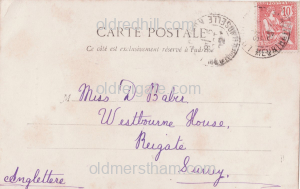 CARTE POSTALE
Ce côté est exclusivement réservé à l'adresse
10
Miss D Baber
Westbourne House,
Reigate
Surrey
Angleterre
oldredhill.com ©
oldreigate.com ©
oldmerstham.com ©